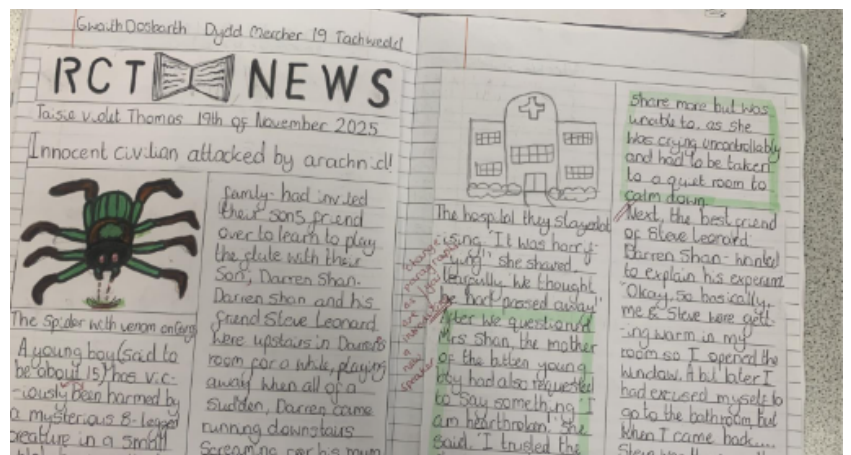 Gwaith Dosbarth Dydd Mercher 19 Tachwedd
RCT NEWS
Violet Thomas 19th of November 2025
Innocent civilian attacked by arachnid!
The Spider with venom
A young boy (said to
be about 15) has vic-
-iously been harmed by
a mysterious 8-legged
creature in a small
family had invited
their sons friend
over to learn to play
the flute with their
Son, Darren Shan.
Darren Shan and his
friend Steve Leonard
were upstairs in Darren's
room for a while, playing
away when all of a
sudden, Darren came
running downstairs
Screaming for his mum
The hospital they stayed at
'It was horr-
she shared
tearfully. 'We thought
he had passed away!'
After we questioned
Mrs Shan, the mother
of the bitten young
boy had also requested
to say something 'I
am heartbroken', she
said. 'I trusted the
change
paragraph
as you
are
introducing
a
new
speaker
share more but was
unable to, as she
was crying uncontrollably
and had to be taken
to a quiet room to
calm down.
Next, the best friend
of Steve Leonard-
Darren Shan- wanted
to explain his
"Okay, so basically,
me & Steve were gett-
-ing warm in my
room so I opened the
window. A bit later I
had excused myself to
go to the bathroom but
when I came back....